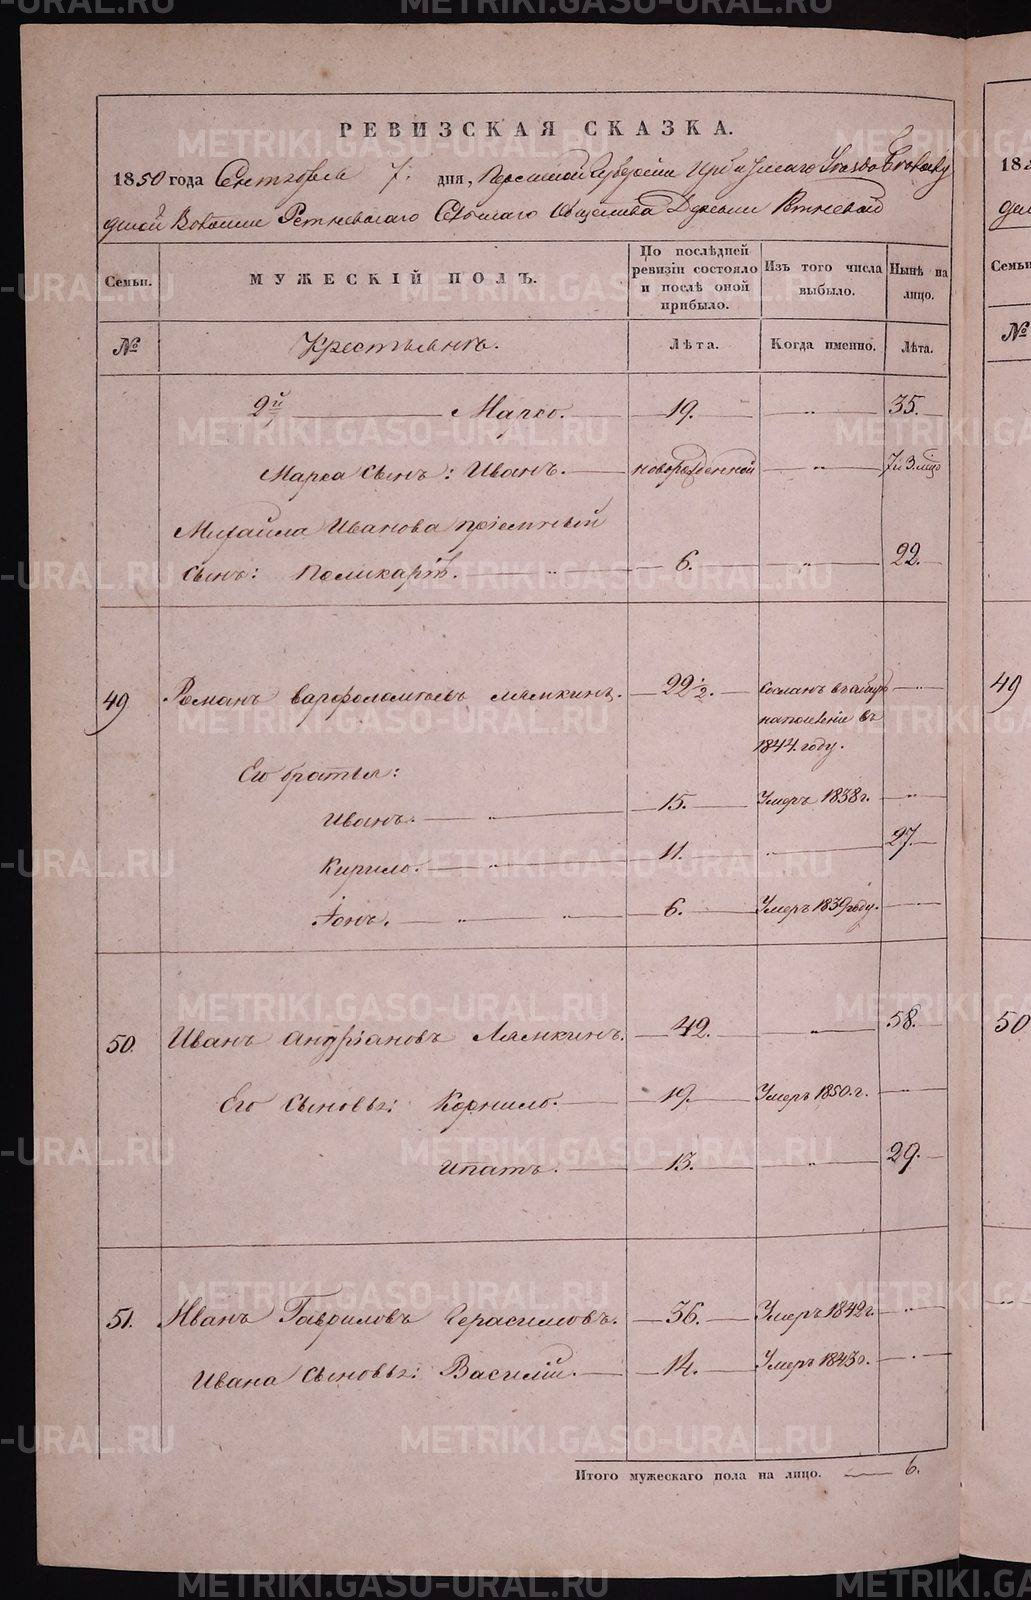 РЕВИЗСКАЯ СКАЗКА.
1850 года Сентября 7. дня, Пермской Губернии Ирбитскаго Уезда
Волости Ретневскаго Сельскаго Общества Деревни Ретневой
Семьи. МУЖЕСКІЙ ПОЛЪ. По послѣдней ревизіи состояло и послѣ оной прибыло. Изъ того числа выбыло. Нынѣ на лицо.
№ Крестьянъ. Лѣта. Когда именно. Лѣта.
2й Марко. 19. " 35.
Марка сынъ: Иванъ. новорожденной " 7 и 3. мѣс
Михайла Иванова пріемный
сынъ: Поликарпъ. " 6. " 22.
49 Романъ Варфоломѣевъ Лямкинъ. 22 1/2. Сосланъ въ Сибирь "
на поселеніе въ
1844. году.
Его братья:
Иванъ. " 15. Умеръ 1838 г. "
Кирило. " 11. " 27.
Іонъ. " " 6. Умеръ 1839 году. "
50. Иванъ Андріановъ Лямкинъ. 42. " 58.
Его сыновья: Корнило. 19. Умеръ 1850. г. "
Ипатъ. 13. " 29.
51. Иванъ Гавриловъ Герасимовъ. 36. Умеръ 1842 г. "
Ивана сыновья: Василій. 14. Умеръ 1843 г. "
Итого мужескаго пола на лицо. 6.
185
Семьи
№
49
50
METRIKI.GASO-URAL.RU